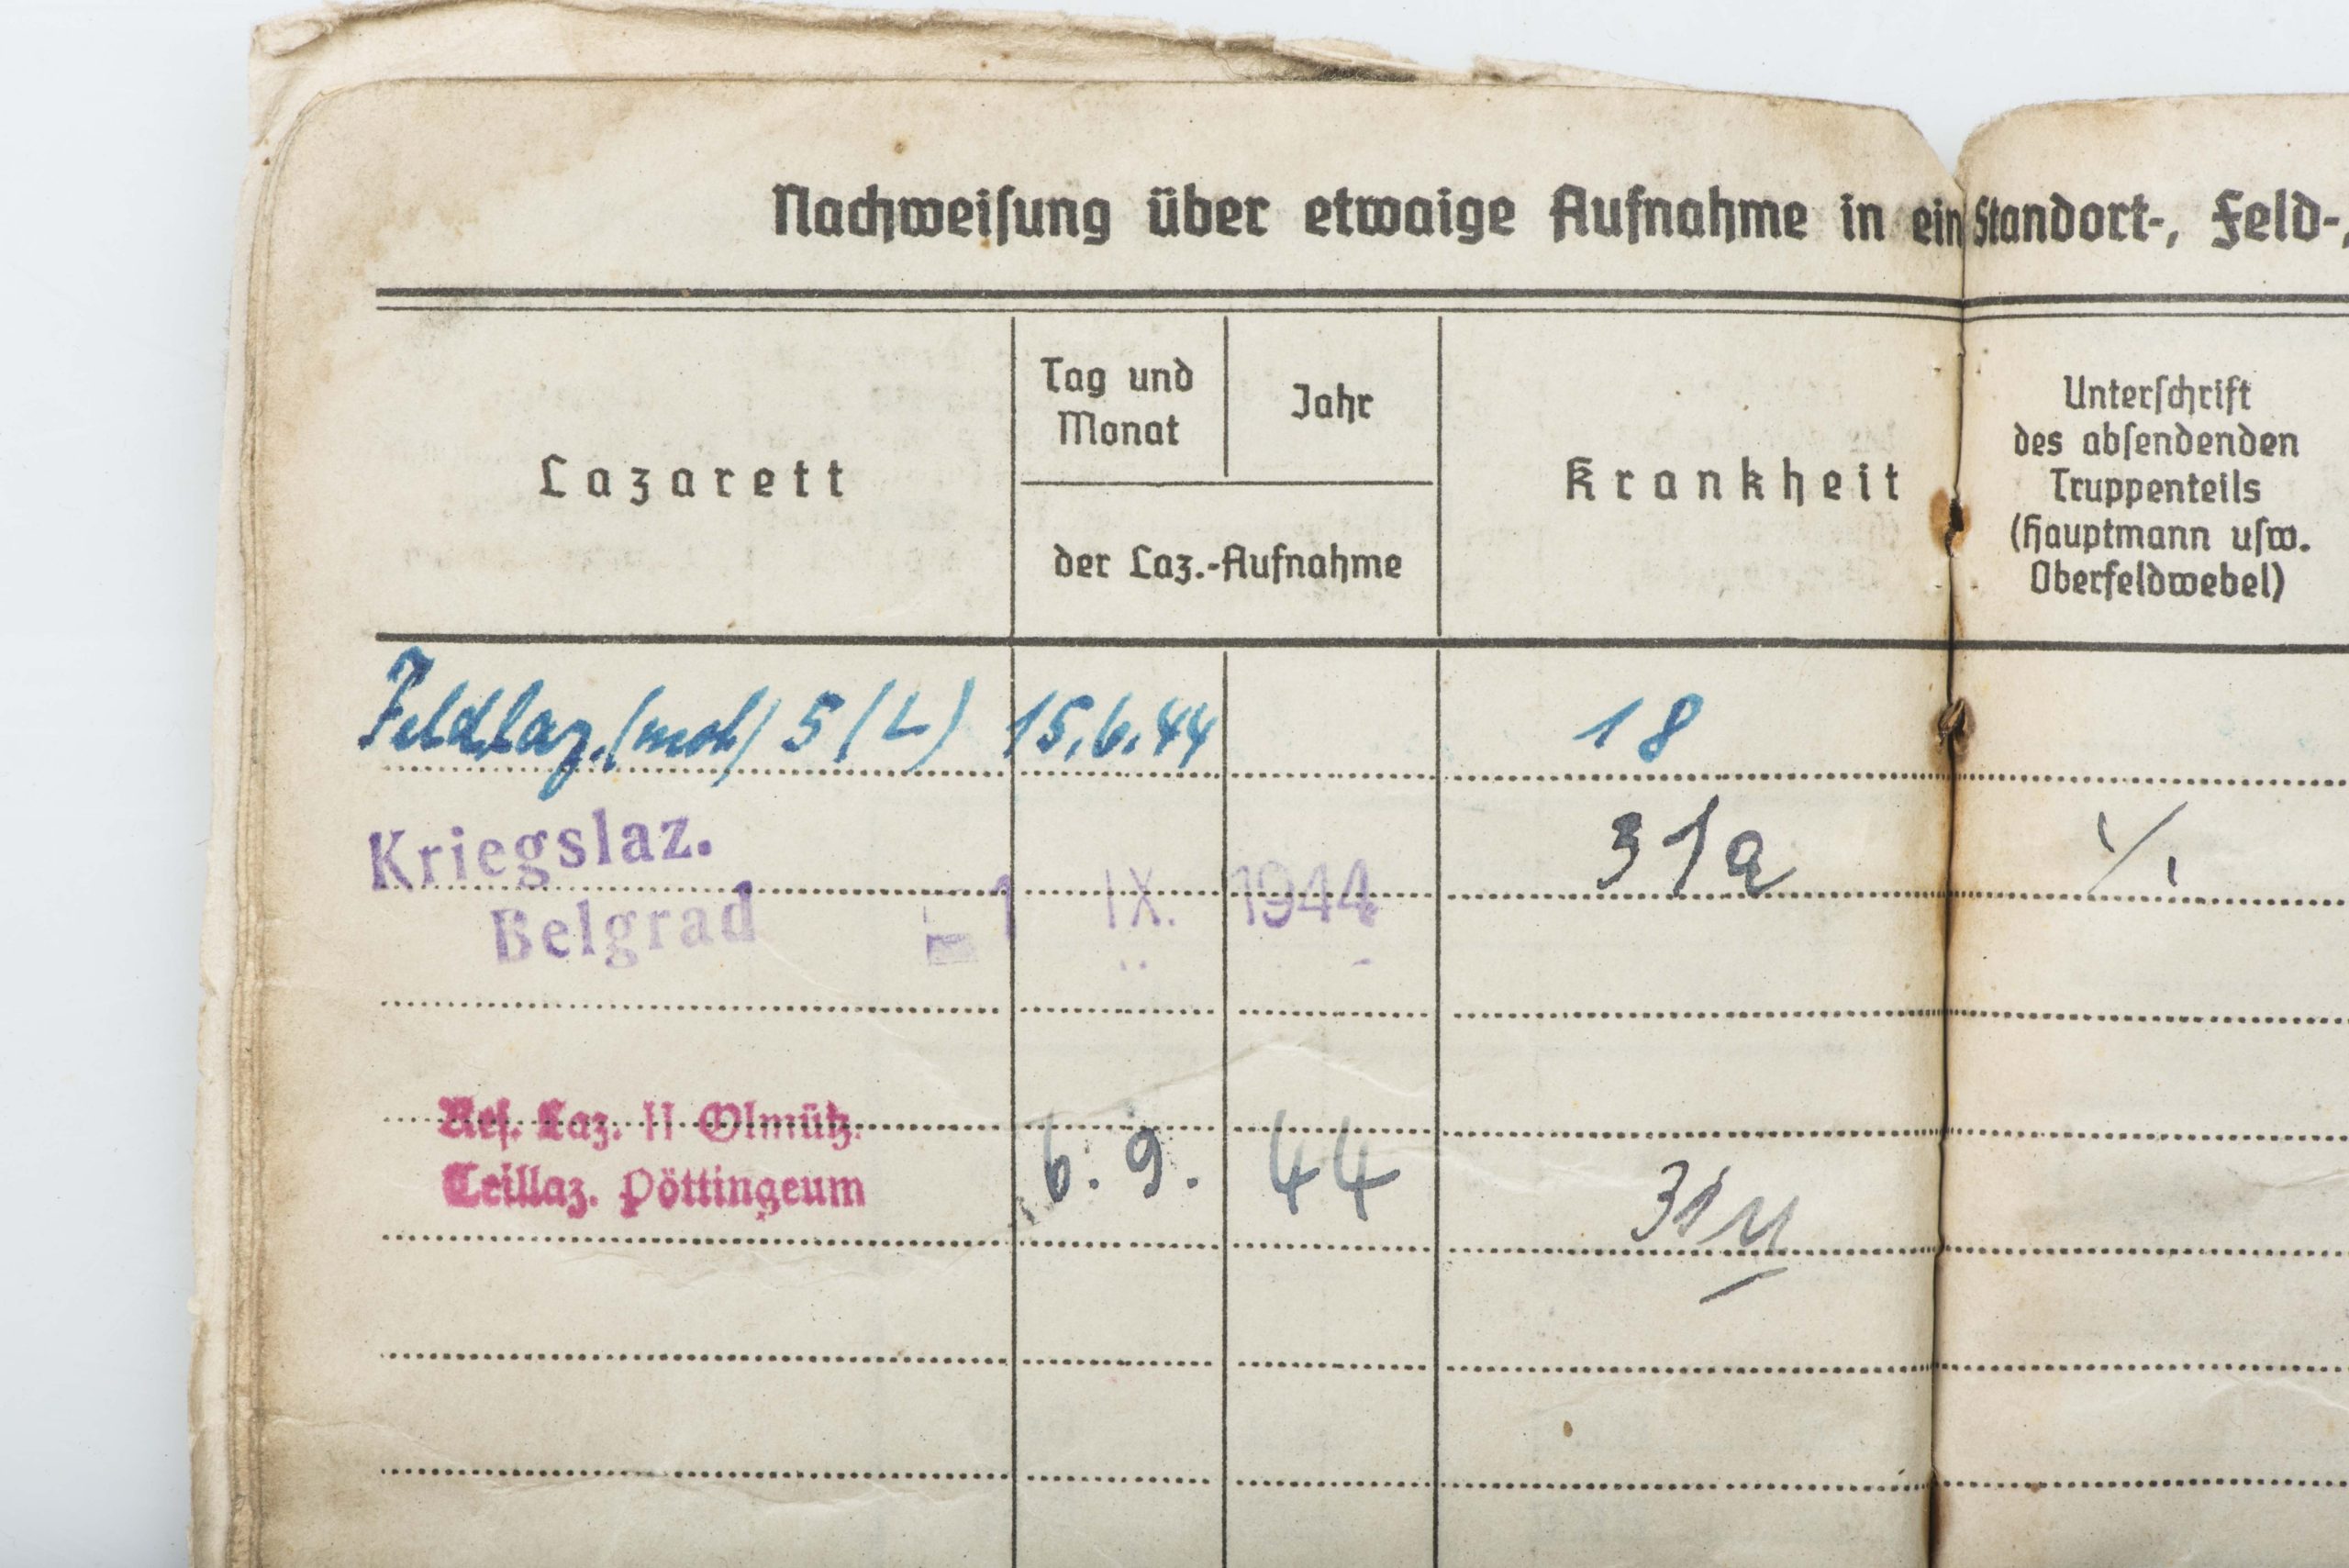 Nachweiſung über etwaige Aufnahme in ein Standort-, Feld-,
Lazarett
Tag und
Monat
Jahr
der Laz.-Aufnahme
Krankheit
Unterſchrift
des abſendenden
Truppenteils
(Hauptmann uſw.
Oberfeldwebel)
Feldlaz. (mot) 5 (L) 15.6.44 18
Kriegslaz. 31a
Belgrad 1 IX. 1944
Reſ. Laz. II Olmütz.
Teillaz. Pöttingeum 6. 9. 44